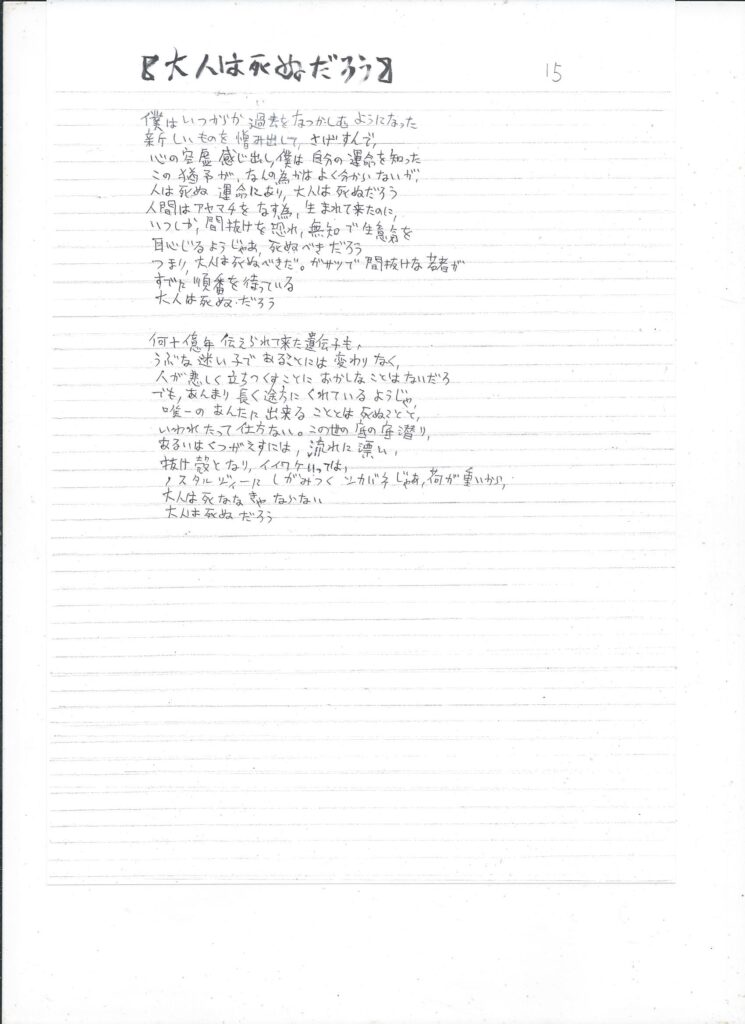 【大人は死ぬだろう】
15
僕はいつからか過去をなつかしむようになった
新しいものを憎み出して、さげすんで、
心の容虚感じ出し、僕は自分の運命を知った
この猶予が、なんの為かはよく分からいないが、
人は死ぬ運命にあり、大人は死ぬだろう
人間はアヤマチをなす為、生まれて来たのに、
いつしか、間抜けを恐れ、無知で生意気を
目心じるようじゃあ、死ぬべきだろう
つまり、大人は死ぬべきだ。ガサツで間抜けな若者が
すでに順番を待っている
大人は死ぬだろう
何十億年伝えられて来た遺伝子も、
うぶな迷い子であることには変わりなく、
人が悲しく立ちつくすことにおかしなことはないだろ
でも、あんまり長く途方にくれているようじゃ、
唯一のあんたに出来ることとは死ぬことで、
いわれたって仕方ない。この世の底の底潜り、
あるいはくつがえすには、流れに漂い、
抜け殻となり、イイワケいっては、
ノスタルジィーにしがみつくシカバネじゃあ、荷が重いから、
大人は死ななきゃならない
大人は死ぬだろう